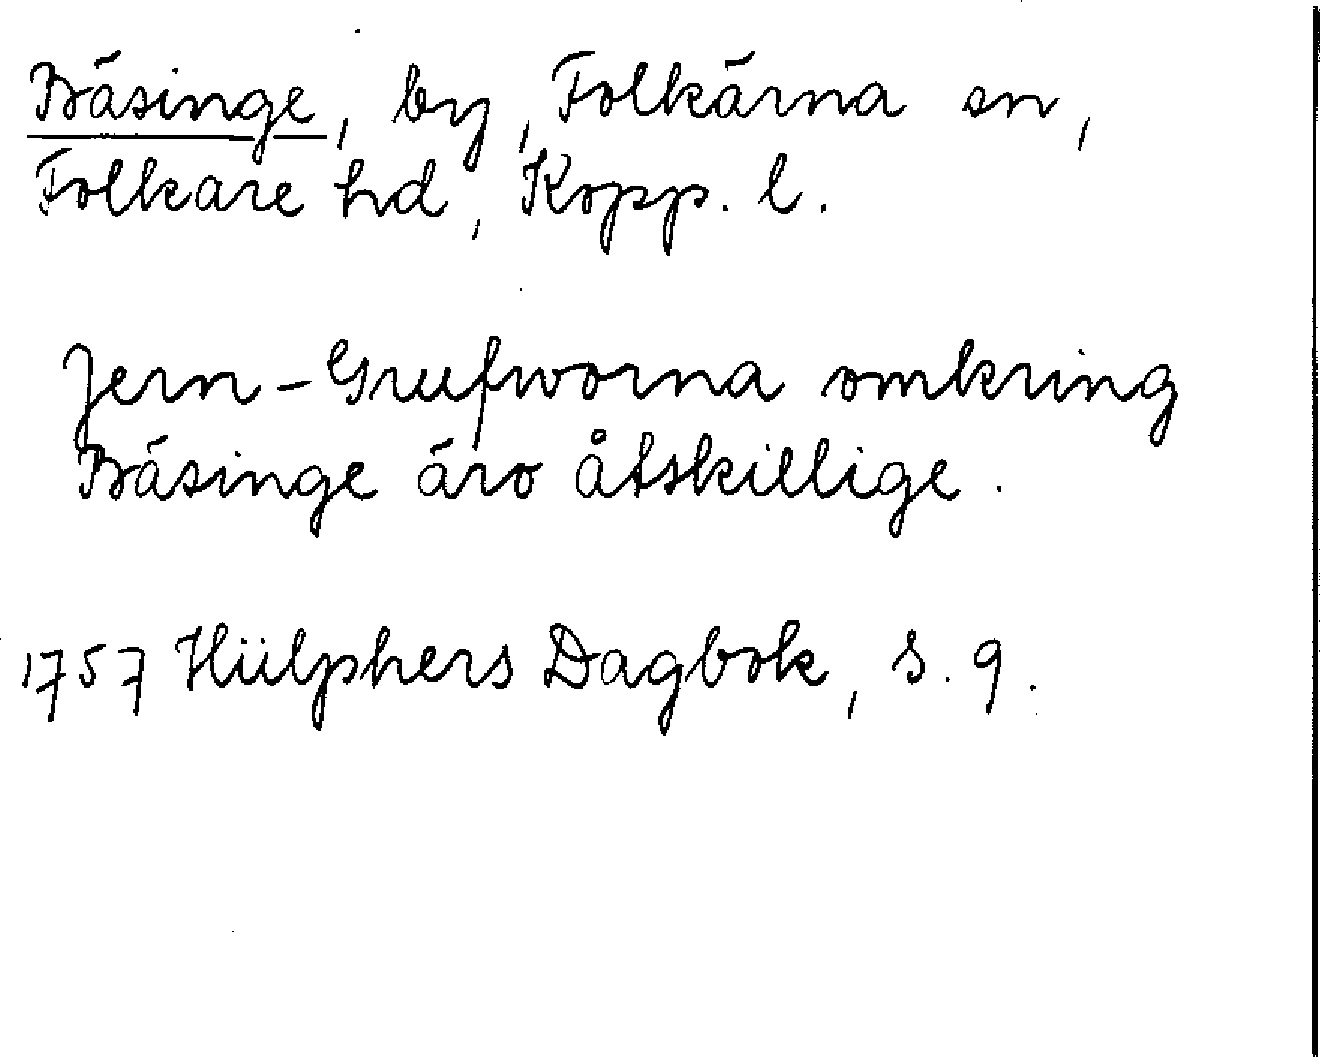 Bäsinge, by, Folkärna sn,
Folkare hd, Kopp. l.
Jern-Grufworna omkring
Bäsinge äro åtskillige.
1757 Hülphers Dagbok, s. 9.